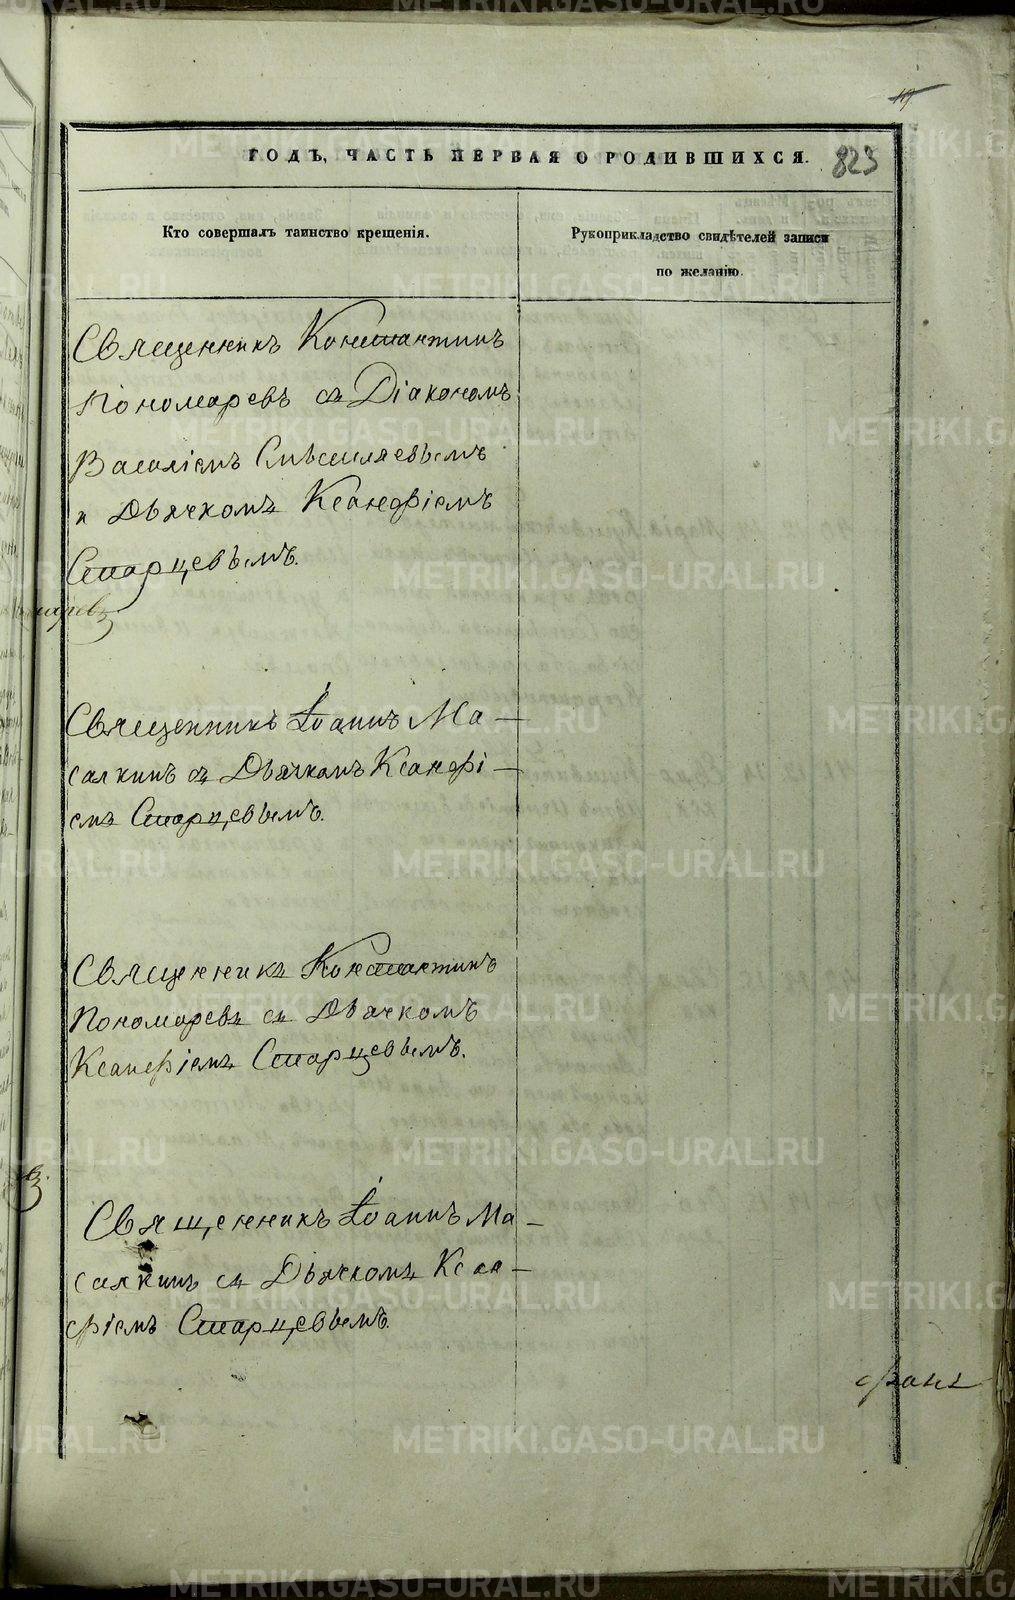 ГОДЪ, ЧАСТЬ ПЕРВАЯ О РОДИВШИХСЯ. 823
Кто совершалъ таинство крещенія.
Рукоприкладство свидѣтелей записи
по желанію.
Священникъ Константинъ
Пономаревъ съ Діакономъ
Василіемъ Смышляевымъ
и Дьячкомъ Ксанфіемъ
Старцевымъ.
Священникъ Іоаннъ Ма-
салкинъ съ Дьячкомъ Ксанфі-
емъ Старцевымъ.
Священникъ Константинъ
Пономаревъ съ Дьячкомъ
Ксанфіемъ Старцевымъ.
Священникъ Іоаннъ Ма-
салкинъ съ Дьячкомъ Ксан-
фіемъ Старцевымъ.
METRIKI.GASO-URAL.RU